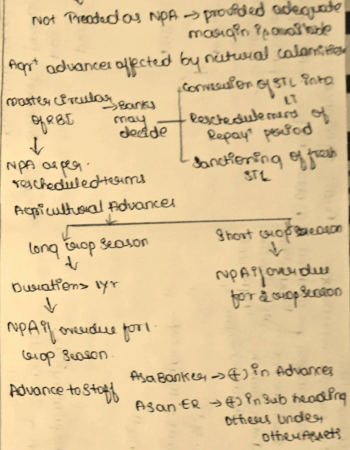 Not Treated as NPA → provided adequate
margin is available
Agrˡ advances affected by natural calamities
Master circular
of RBI
→ Banks
may
decide
Conversion of STL into
LT
Reschedulement of
Repayᵗ period
Sanctioning of fresh
STL
↓
NPA as per
rescheduled terms
Agricultural Advances
Long crop season
↓
Duration > 1yr
↓
NPA if overdue for 1
crop season.
Short crop season
↓
NPA if overdue
for 2 crop season
Advance to Staff
As a Banker → (+) in Advances
As an ER → (+) in Sub heading
others under
other Assets